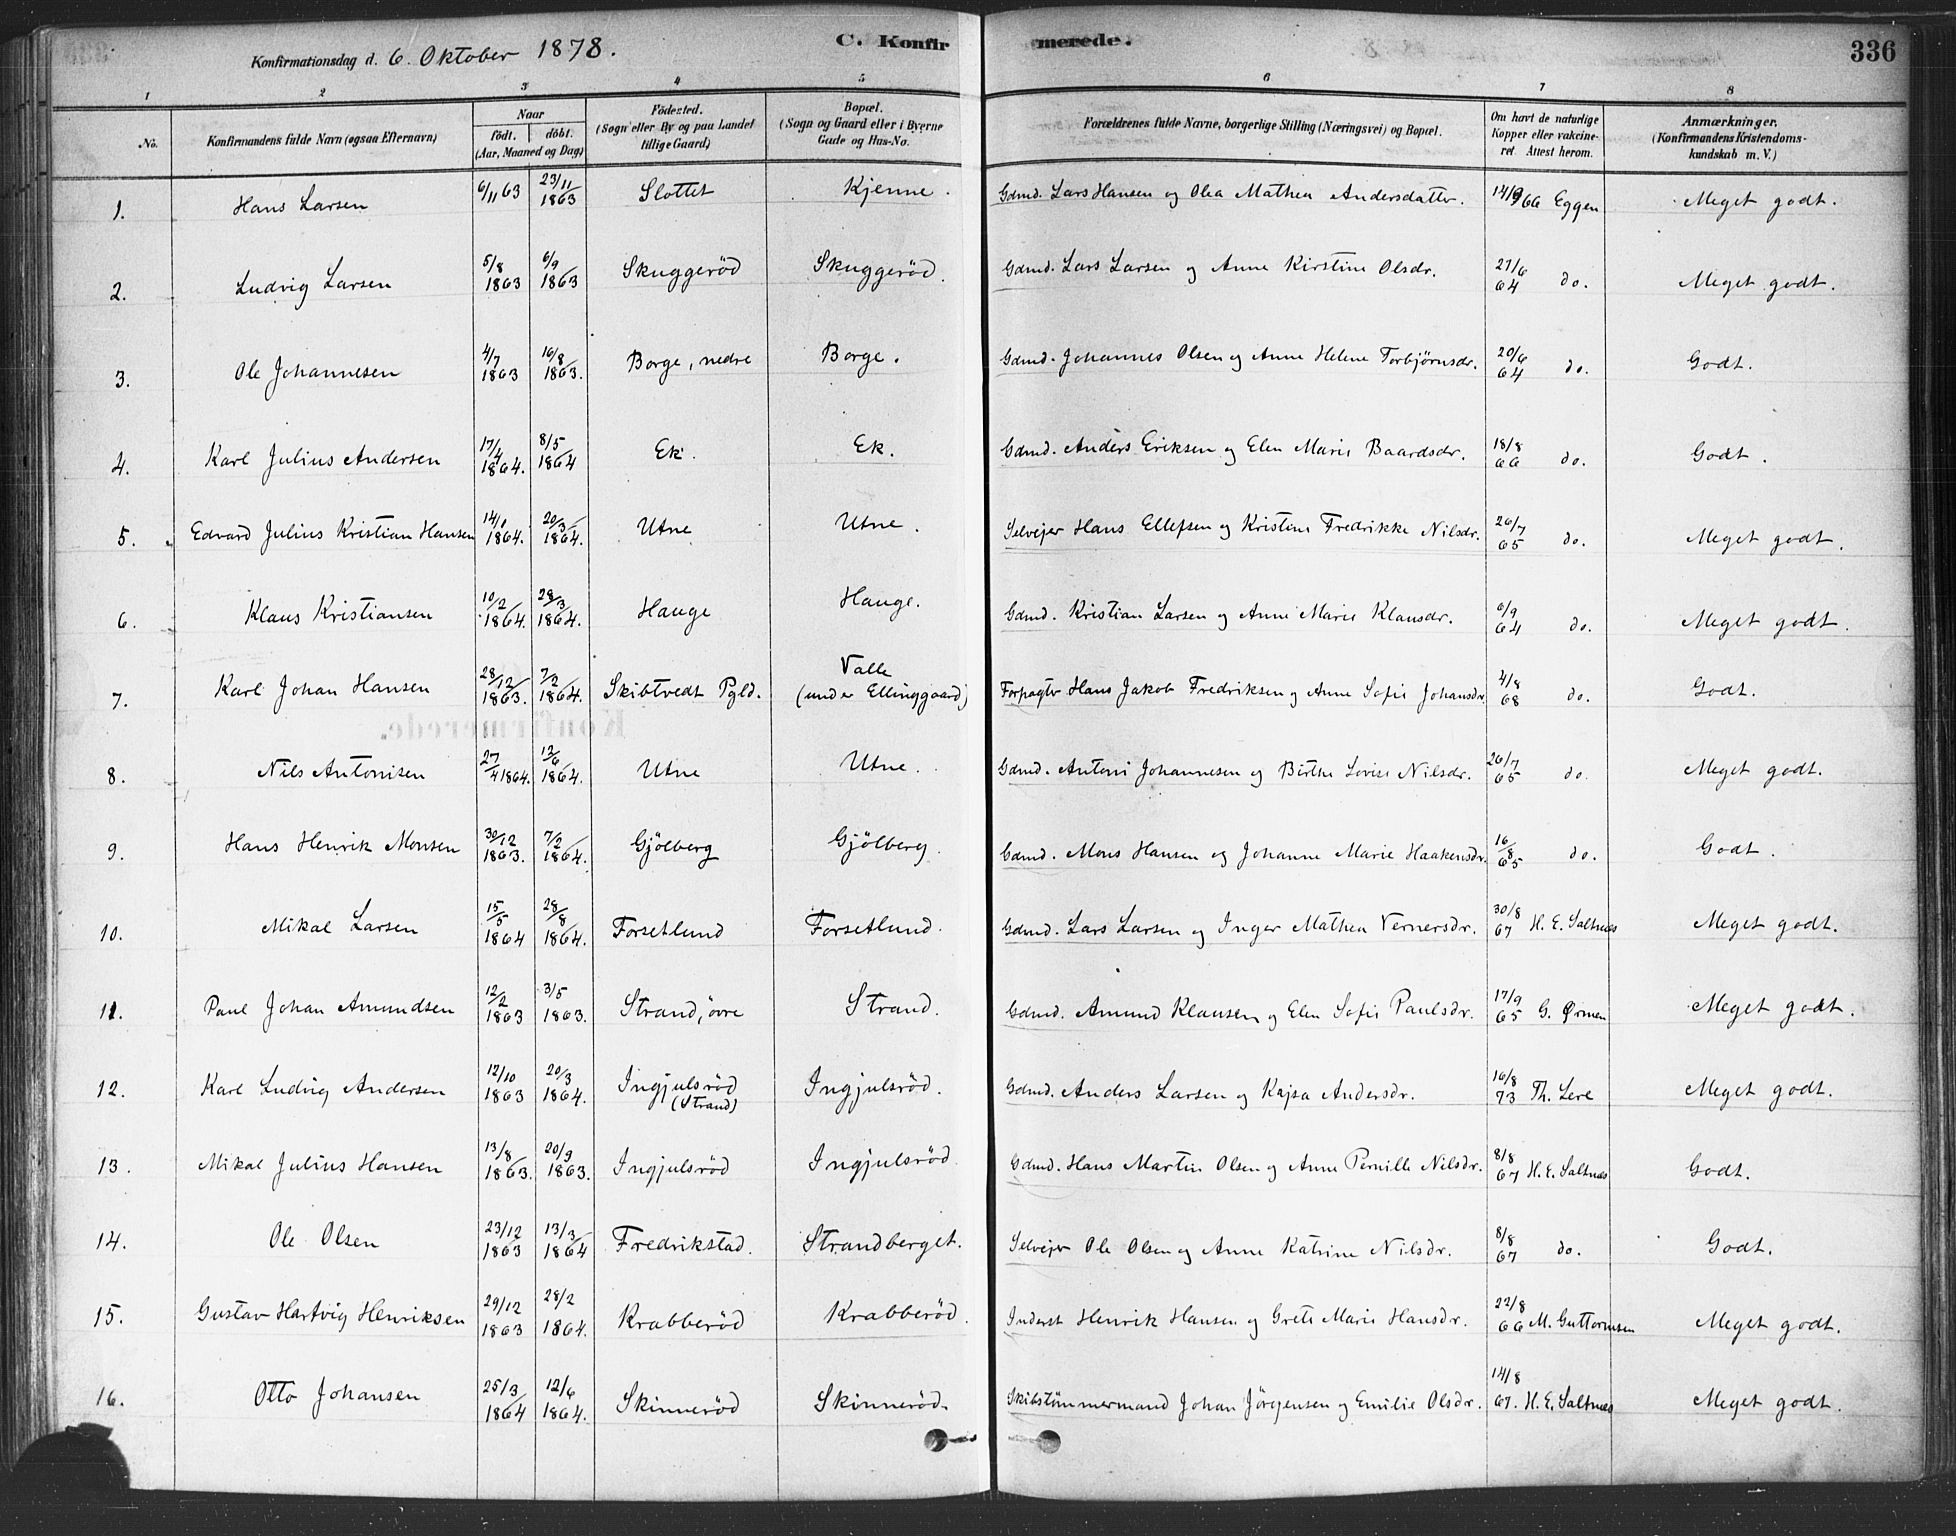 Konfirmationsdag d. 6. Oktober 1878.
C. Konfirmerede.
336
1 2 3 4 5 6 7 8
No. Konfirmandens fulde Navn (ogsaa Efternavn) Naar födt. döbt. (Aar, Maaned og Dag) Födested. (Sogn eller By og paa Landet tillige Gaard) Bopæl. (Sogn og Gaard eller i Byerne Gade og Hus-No. Forældrenes fulde Navne, borgerlige Stilling (Næringsvei) og Bopæl. Om havt de naturlige Kopper eller vakcineret. Attest herom. Anmærkninger. (Konfirmandens Kristendomskundskab m. V.)
1. Hans Larsen 6/11 63 23/11 1863 Slottet Kjenne. Gdmd. Lars Hansen og Olea Mathea Andersdatter. 14/9 66 Eggen Meget godt.
2. Ludvig Larsen 5/8 1863 6/9 1863 Skuggeröd Skuggeröd. Gdmd. Lars Larsen og Anne Kirstine Olsdr. 27/6 64 do. Meget godt.
3. Ole Johannesen 4/7 1863 16/8 1863. Borge, nedre Borge. Gdmd. Johannes Olsen og Anne Helene Torbjørnsdr. 20/6 64 do. Godt.
4. Karl Julius Andersen 17/4 1864. 8/5 1864 Ek. Ek. Gdmd. Anders Eriksen og Elen Marie Baardsdr. 18/8 66 do. Godt.
5. Edvard Julius Kristian Hansen 14/1 1864. 20/3 1864. Utne Utne. Selvejer Hans Ellefsen og Kristine Fredrikke Nilsdr. 26/7 65 do. Meget godt.
6. Klaus Kristiansen 10/2 1864. 28/3 1864. Hauge Hauge. Gdmd. Kristian Larsen og Anne Marie Klausdr. 6/9 64 do. Meget godt.
7. Karl Johan Hansen 28/12 1863. 7/2 1864. Skibtvedt Pgld. Valle (under Ellinggaard) Forpagter Hans Jakob Fredriksen og Anne Sofie Johansdr. 4/8 68 do. Godt.
8. Nils Antonisen 27/4 1864. 12/6 1864. Utne Utne. Gdmd. Antoni Johannesen og Birthe Lovise Nilsdr. 26/7 65 do. Meget godt.
9. Hans Henrik Monsen 30/12 1863. 7/2 1864. Gjölberg Gjölberg. Gdmd. Mons Hansen og Johanne Marie Haakensdr. 16/8 65 do. Godt.
10. Mikal Larsen 15/5 1864 28/8 1864. Forsetlund Forsetlund. Gdmd. Lars Larsen og Inger Mathea Vernersdr. 30/8 67 H. E. Saltnæs Meget godt.
11. Paul Johan Amundsen 12/2 1863 3/5 1863. Strand, övre Strand. Gdmd. Amund Klausen og Elen Sofie Paulsdr. 17/9 65 G. Ørmen Meget godt.
12. Karl Ludvig Andersen 12/10 1863 20/3 1864. Ingjulsröd (Strand) Ingjulsröd. Gdmd. Anders Larsen og Kajsa Andersdr. 16/8 73 Th. Lere Meget godt.
13. Mikal Julius Hansen 13/8 1863. 20/9 1863. Ingjulsröd Ingjulsröd Gdmd. Hans Martin Olsen og Anne Pernille Nilsdr. 8/8 67 H. E. Saltnæs Godt.
14. Ole Olsen 23/12 1863 13/3 1864 Fredrikstad. Strandberget. Selvejer Ole Olsen og Anne Katrine Nilsdr. 8/8 67 do. Godt.
15. Gustav Hartvig Henriksen 29/12 1863 28/2 1864. Krabberöd Krabberöd. Inderst Henrik Hansen og Grete Marie Hansdr. 22/8 66 M. Guttormsen Meget godt.
16. Otto Johansen 25/3 1864 12/6 1864. Skinneröd Skinneröd. Skibstömmermand Johan Jörgensen og Emilie Olsdr. 14/8 67. H. E. Saltnæs Meget godt.